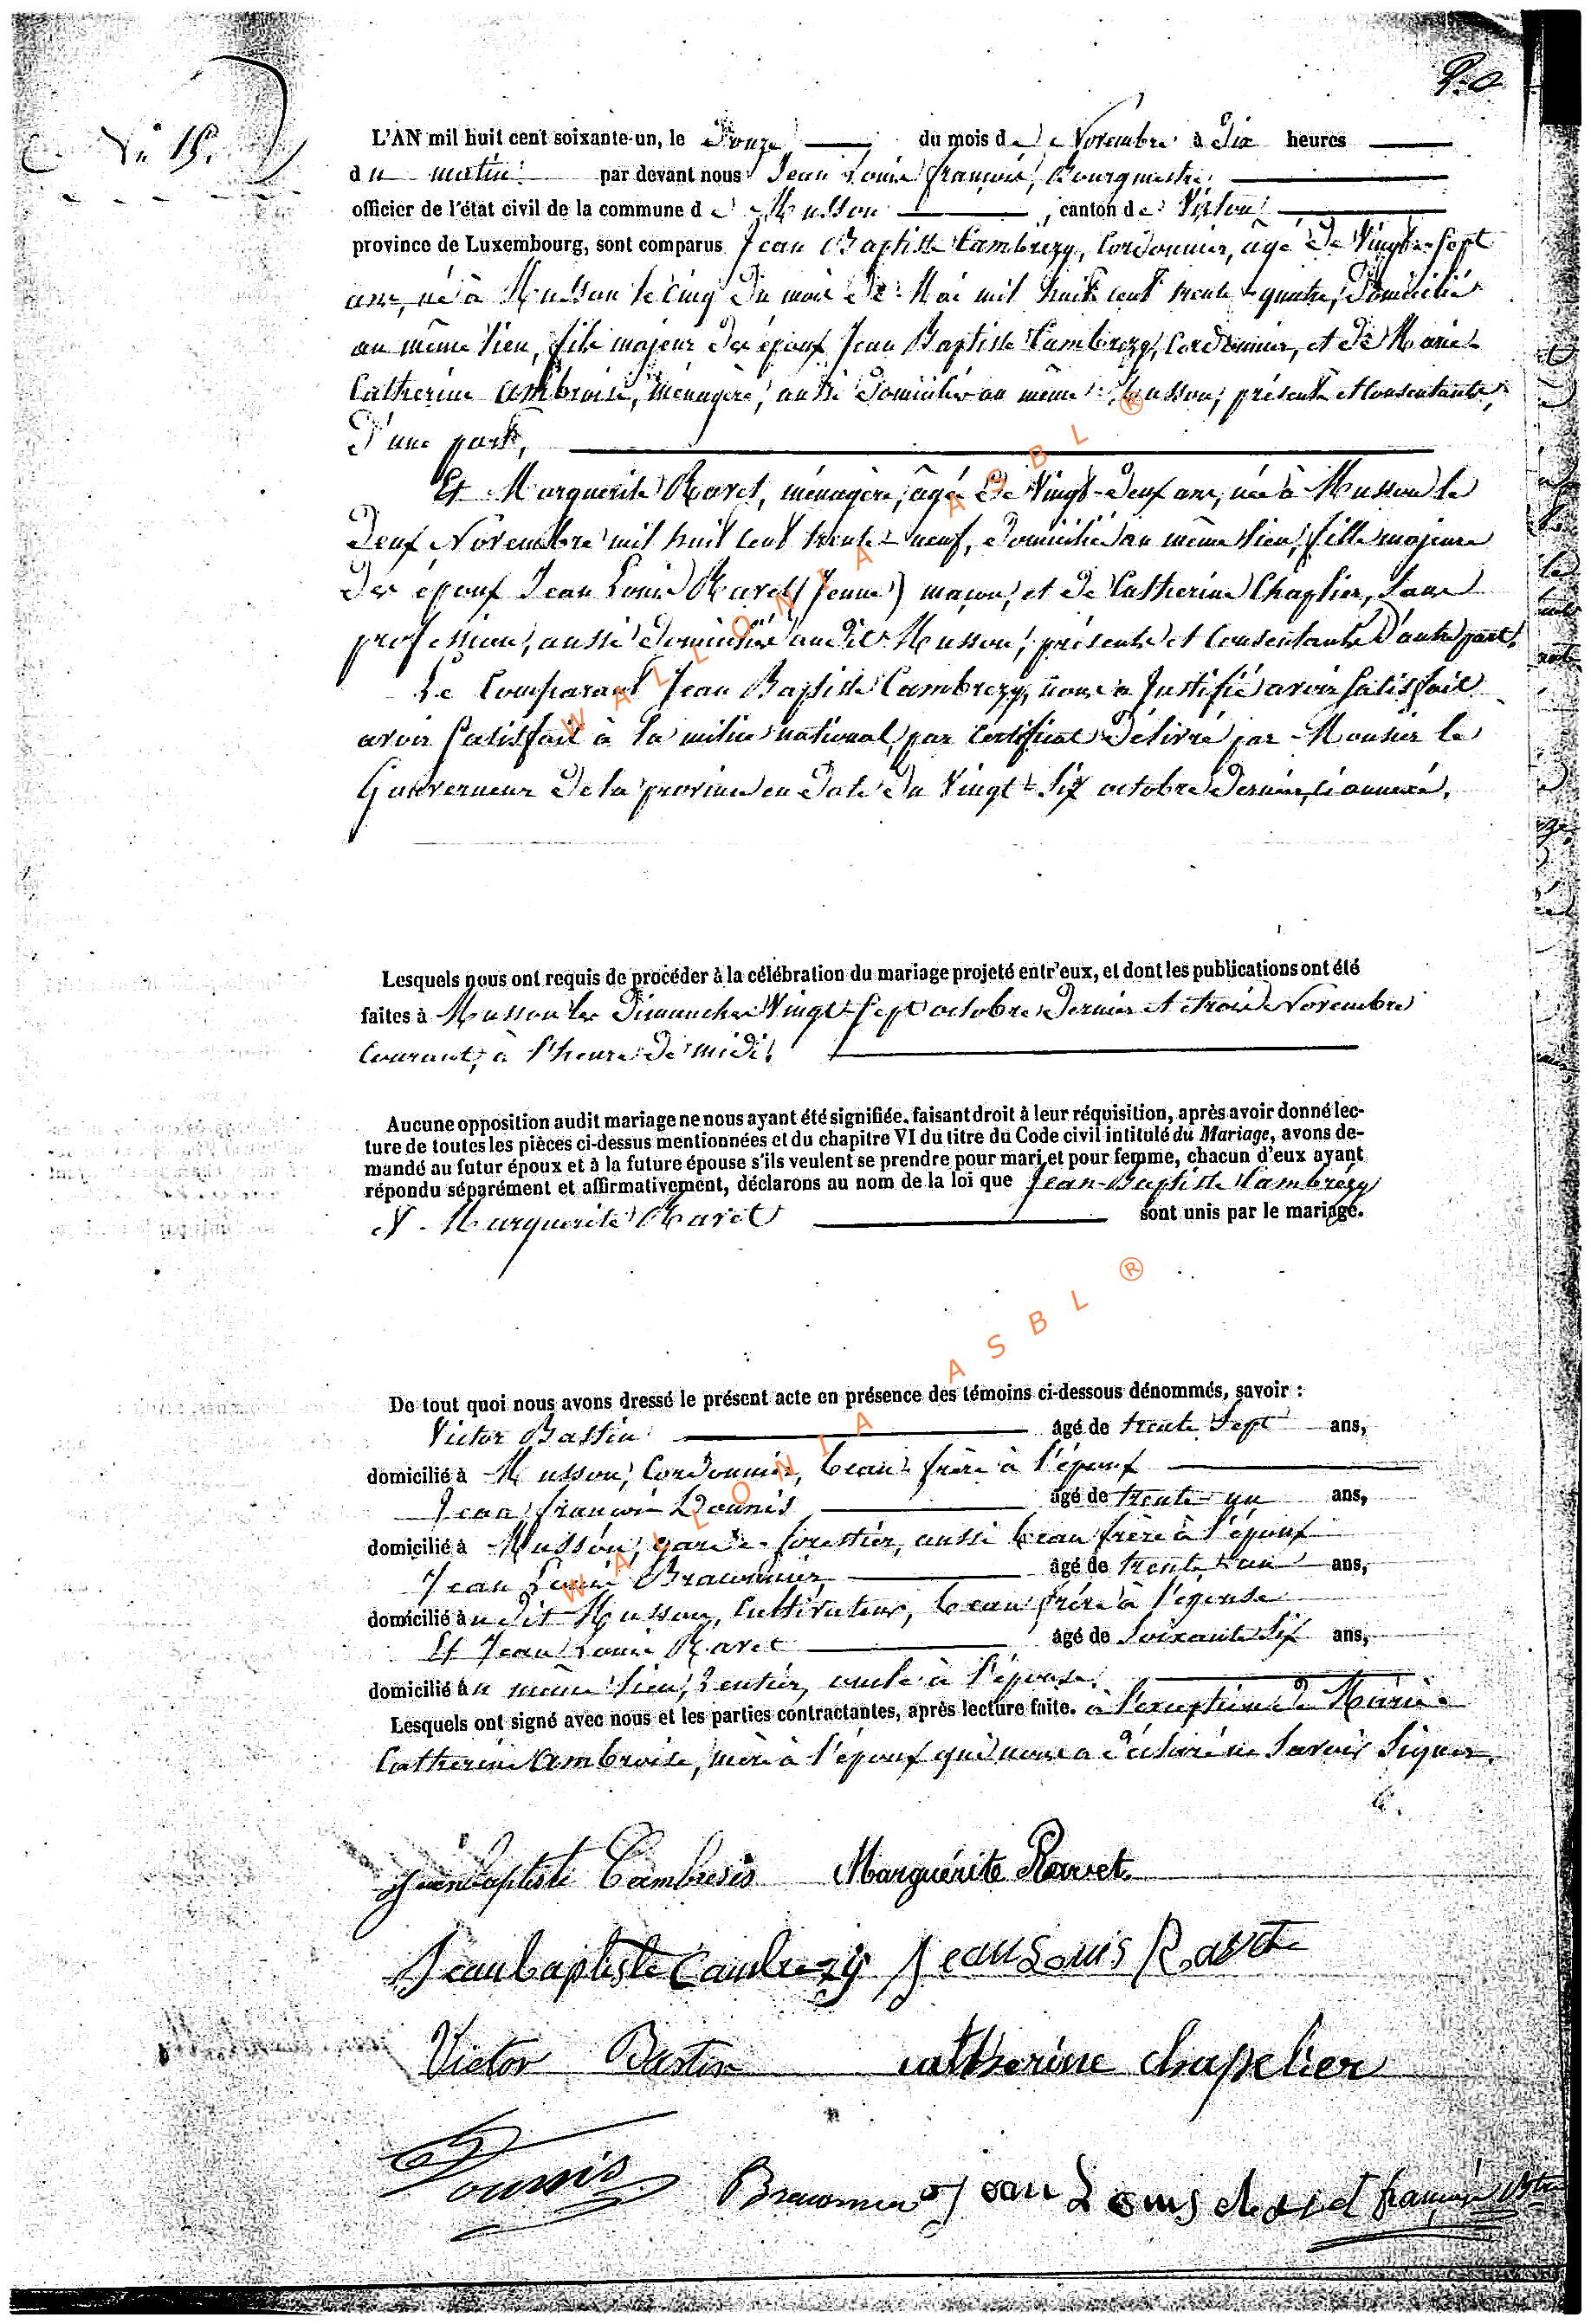 N° 15.
L'AN mil huit cent soixante-un, le Douze du mois de Novembre à Dix heures
du matin par devant nous Jean Louis François, Bourgmestre,
officier de l'état civil de la commune de Musson, canton de Virton
province de Luxembourg, sont comparus Jean Baptiste Cambrézy, Cordonnier, âgé de Vingt-sept
ans, né à Musson le cinq du mois de Mai mil huit cent trente-quatre, domicilié
au même lieu, fils majeur des époux Jean Baptiste Cambrezy, Cordonnier, et de Marie
Catherine Ambroise, ménagère, aussi domiciliés au même Musson, présents et consentants,
d'une part,
Et Marguerite Ravet, ménagère, âgée de Vingt-deux ans, née à Musson le
deux Novembre mil huit cent trente-neuf, domiciliée au même lieu, fille majeure
des époux Jean Louis Ravet (Jeune) maçon, et de Catherine Chaplier, sans
profession, aussi domiciliés audit Musson, présents et consentants d'autre part.
Le Comparant Jean Baptiste Cambrezy, nous a justifié avoir satisfait
avoir satisfait à la milice national, par certificat délivré par Monsieur le
Gouverneur de la province en date du Vingt-Six octobre dernier, ci annexé.
Lesquels nous ont requis de procéder à la célébration du mariage projeté entr'eux, et dont les publications ont été
faites à Musson les Dimanches Vingt-Sept octobre dernier et trois Novembre
courant, à l'heure de midi.
Aucune opposition audit mariage ne nous ayant été signifiée, faisant droit à leur réquisition, après avoir donné lec-
ture de toutes les pièces ci-dessus mentionnées et du chapitre VI du titre du Code civil intitulé du Mariage, avons de-
mandé au futur époux et à la future épouse s'ils veulent se prendre pour mari et pour femme, chacun d'eux ayant
répondu séparément et affirmativement, déclarons au nom de la loi que Jean-Baptiste Cambrézy
et Marguerite Ravet sont unis par le mariage.
De tout quoi nous avons dressé le présent acte en présence des témoins ci-dessous dénommés, savoir :
Victor Bastin âgé de trente Sept ans,
domicilié à Musson, Cordonnier, beau-frère à l'époux
Jean François Dounis âgé de trente-un ans,
domicilié à Musson, garde-forestier, aussi beau frère à l'époux
Jean Louis Braconnier âgé de trente-un ans,
domicilié audit Musson, Cultivateur, beau frère à l'épouse
Et Jean Louis Ravet âgé de Soixante Six ans,
domicilié au même lieu, rentier, oncle à l'épouse.
Lesquels ont signé avec nous et les parties contractantes, après lecture faite. à l'exception de Marie
Catherine Ambroise, mère à l'époux qui nous a déclaré ne savoir signer.
Jean baptiste Cambresis Marguérite Ravet
Jean baptiste Cambrezy Jean Louis Ravet
Victor Bastin catherine chapelier
Dounis Braconnier Jean Louis Ravet françois
WALLONIA ASBL ®
WALLONIA ASBL ®